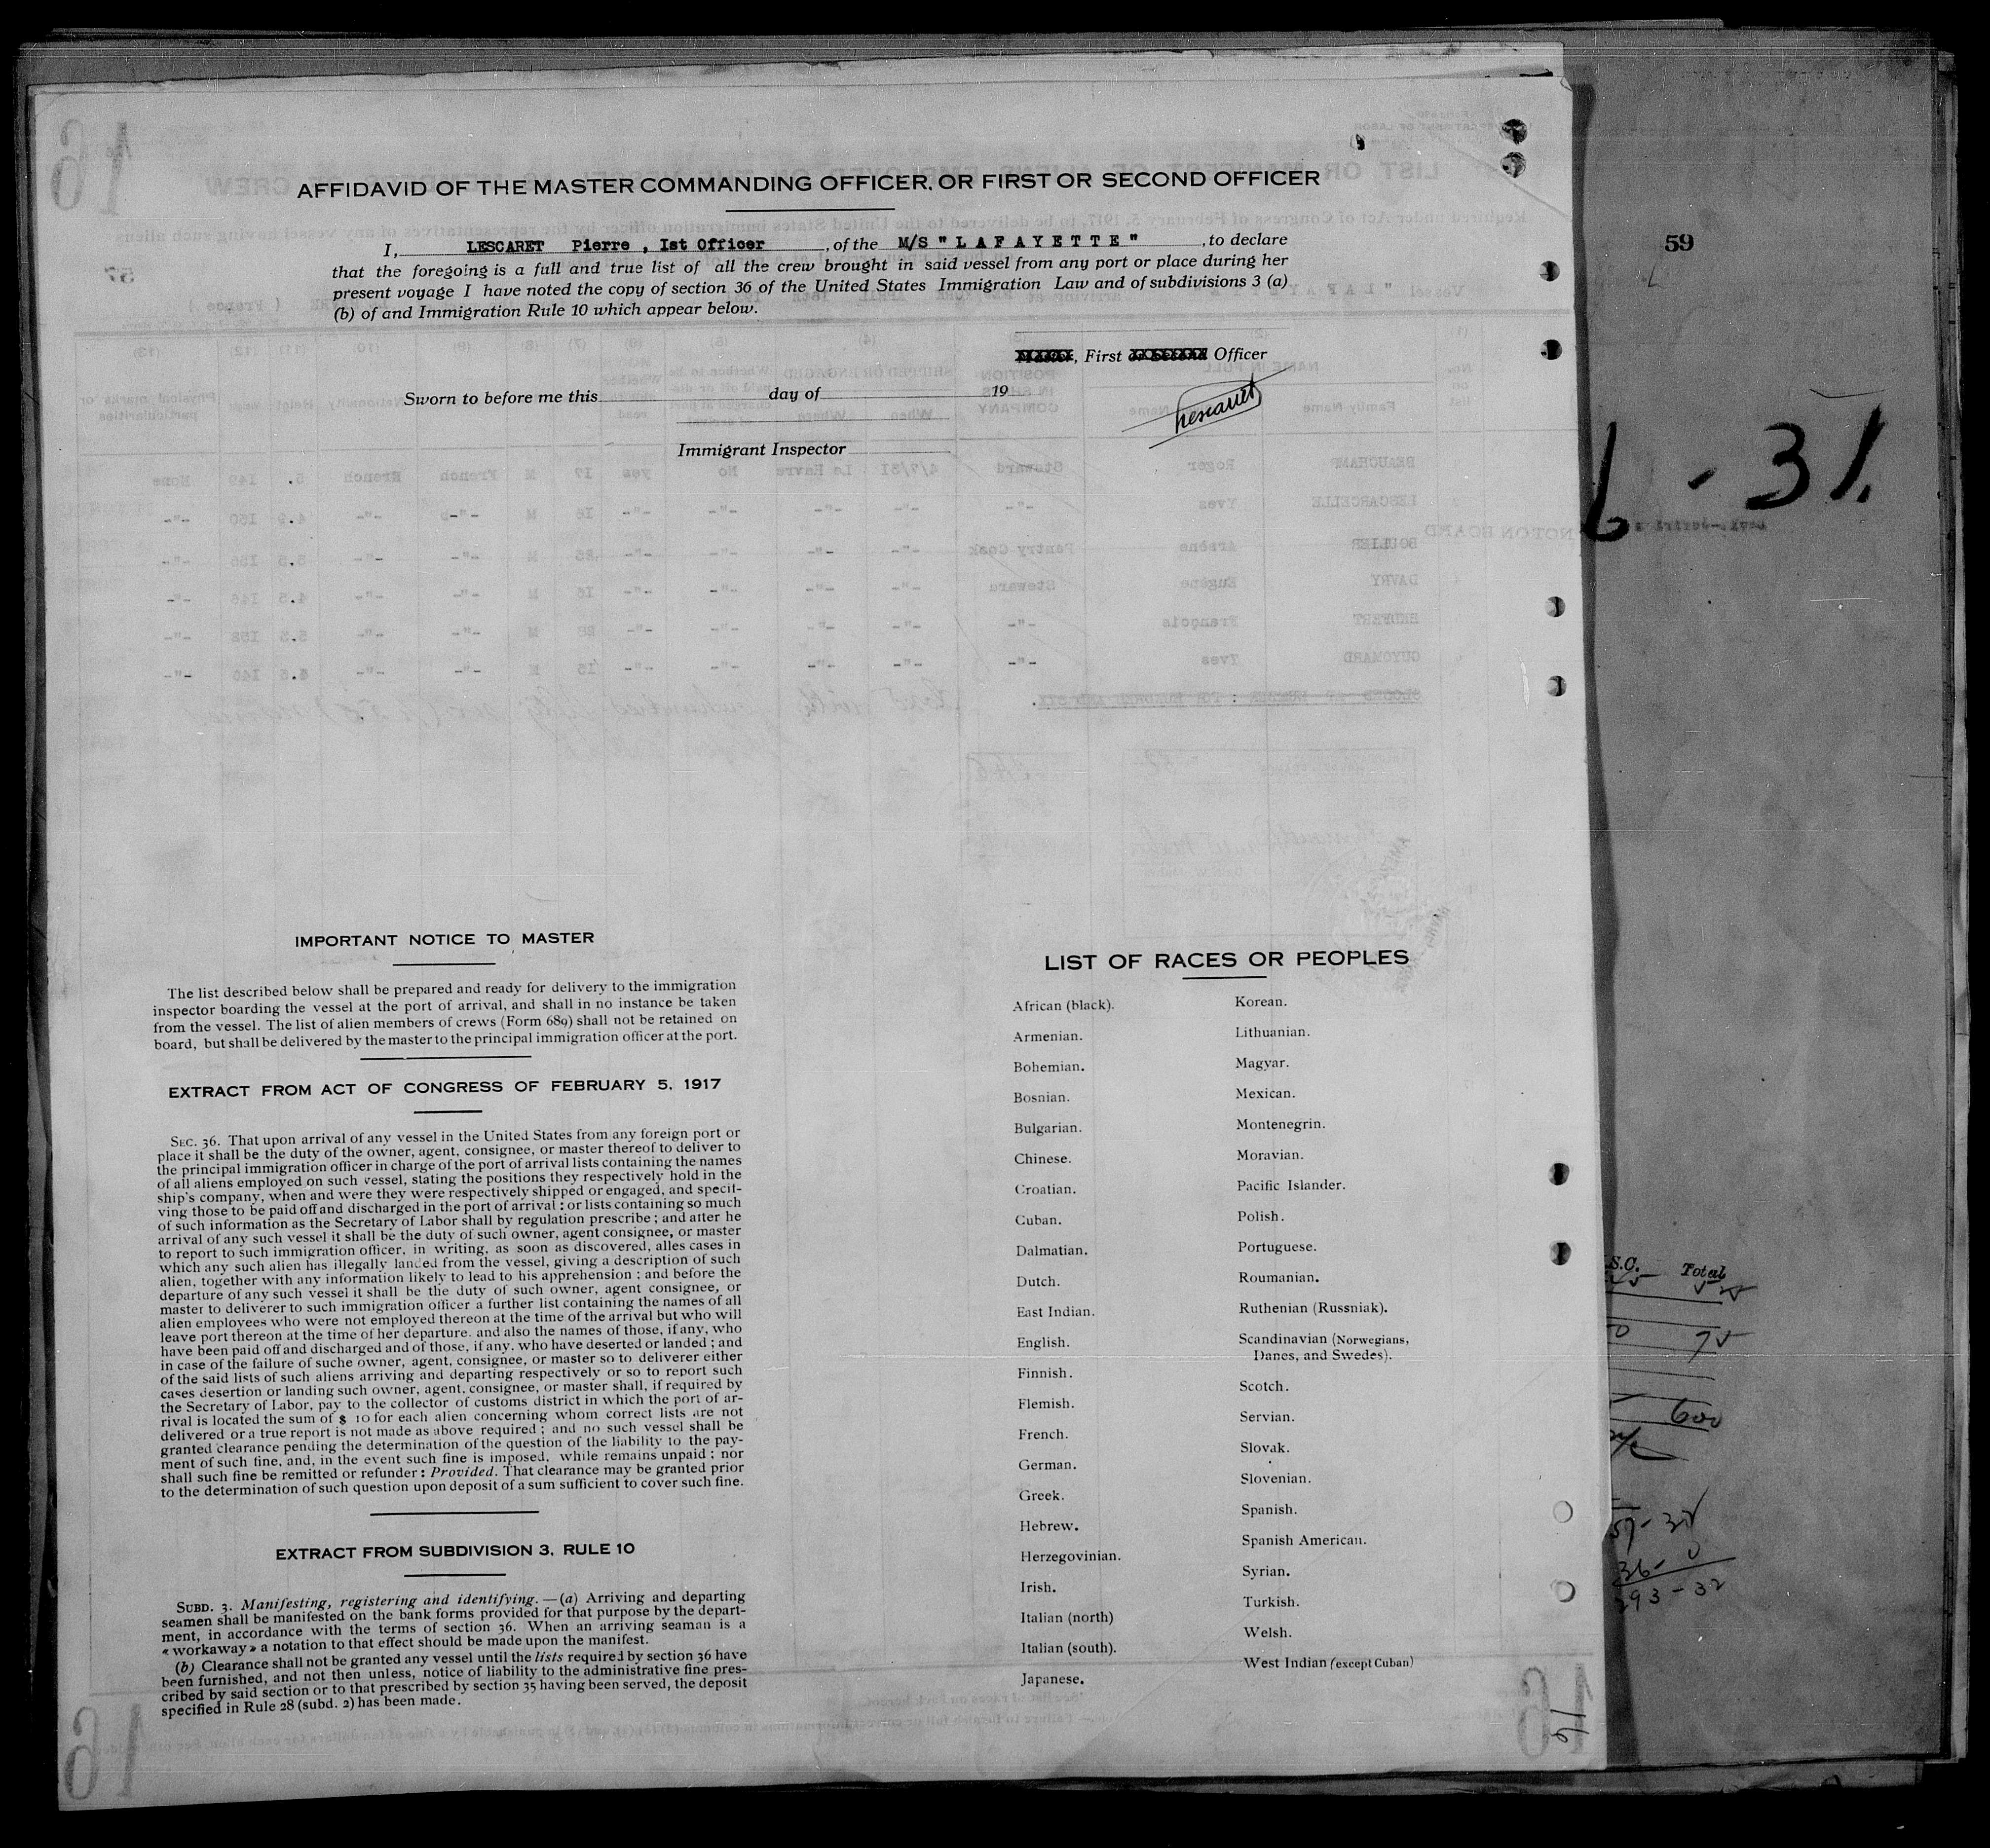 AFFIDAVID OF THE MASTER COMMANDING OFFICER, OR FIRST OR SECOND OFFICER
I, LESCARET Pierre , Ist Officer , of the M/S " L A F A Y E T T E " , to declare
that the foregoing is a full and true list of all the crew brought in said vessel from any port or place during her
present voyage I have noted the copy of section 36 of the United States Immigration Law and of subdivisions 3 (a)
(b) of and Immigration Rule 10 which appear below.
Master, First or Second Officer
Sworn to before me this day of 19
Lescaret
Immigrant Inspector
59
6 - 31.
IMPORTANT NOTICE TO MASTER
The list described below shall be prepared and ready for delivery to the immigration
inspector boarding the vessel at the port of arrival, and shall in no instance be taken
from the vessel. The list of alien members of crews (Form 689) shall not be retained on
board, but shall be delivered by the master to the principal immigration officer at the port.
EXTRACT FROM ACT OF CONGRESS OF FEBRUARY 5, 1917
SEC. 36. That upon arrival of any vessel in the United States from any foreign port or
place it shall be the duty of the owner, agent, consignee, or master thereof to deliver to
the principal immigration officer in charge of the port of arrival lists containing the names
of all aliens employed on such vessel, stating the positions they respectively hold in the
ship's company, when and were they were respectively shipped or engaged, and specif-
ving those to be paid off and discharged in the port of arrival : or lists containing so much
of such information as the Secretary of Labor shall by regulation prescribe ; and after he
arrival of any such vessel it shall be the duty of such owner, agent consignee, or master
to report to such immigration officer, in writing, as soon as discovered, alles cases in
which any such alien has illegally landed from the vessel, giving a description of such
alien, together with any information likely to lead to his apprehension : and before the
departure of any such vessel it shall be the duty of such owner, agent consignee, or
master to deliverer to such immigration officer a further list containing the names of all
alien employees who were not employed thereon at the time of the arrival but who will
leave port thereon at the time of her departure. and also the names of those, if any, who
have been paid off and discharged and of those, if any. who have deserted or landed ; and
in case of the failure of suche owner, agent, consignee, or master so to deliverer either
of the said lists of such aliens arriving and departing respectively or so to report such
cases desertion or landing such owner, agent, consignee, or master shall, if required by
the Secretary of Labor, pay to the collector of customs district in which the port of ar-
rival is located the sum of $ 10 for each alien concerning whom correct lists are not
delivered or a true report is not made as above required ; and no such vessel shall be
granted clearance pending the determination of the question of the liability to the pay-
ment of such fine, and, in the event such fine is imposed, while remains unpaid ; nor
shall such fine be remitted or refunder : Provided. That clearance may be granted prior
to the determination of such question upon deposit of a sum sufficient to cover such fine.
EXTRACT FROM SUBDIVISION 3, RULE 10
SUBD. 3. Manifesting, registering and identifying. — (a) Arriving and departing
seamen shall be manifested on the bank forms provided for that purpose by the depart-
ment, in accordance with the terms of section 36. When an arriving seaman is a
« workaway » a notation to that effect should be made upon the manifest.
(b) Clearance shall not be granted any vessel until the lists required by section 36 have
been furnished, and not then unless, notice of liability to the administrative fine pres-
cribed by said section or to that prescribed by section 35 having been served, the deposit
specified in Rule 28 (subd. 2) has been made.
LIST OF RACES OR PEOPLES
African (black).
Armenian.
Bohemian.
Bosnian.
Bulgarian.
Chinese.
Croatian.
Cuban.
Dalmatian.
Dutch.
East Indian.
English.
Finnish.
Flemish.
French.
German.
Greek.
Hebrew.
Herzegovinian.
Irish.
Italian (north)
Italian (south).
Japanese.
Korean.
Lithuanian.
Magyar.
Mexican.
Montenegrin.
Moravian.
Pacific Islander.
Polish.
Portuguese.
Roumanian.
Ruthenian (Russniak).
Scandinavian (Norwegians,
Danes, and Swedes).
Scotch.
Servian.
Slovak.
Slovenian.
Spanish.
Spanish American.
Syrian.
Turkish.
Welsh.
West Indian (except Cuban)
S.C. Total
600
16